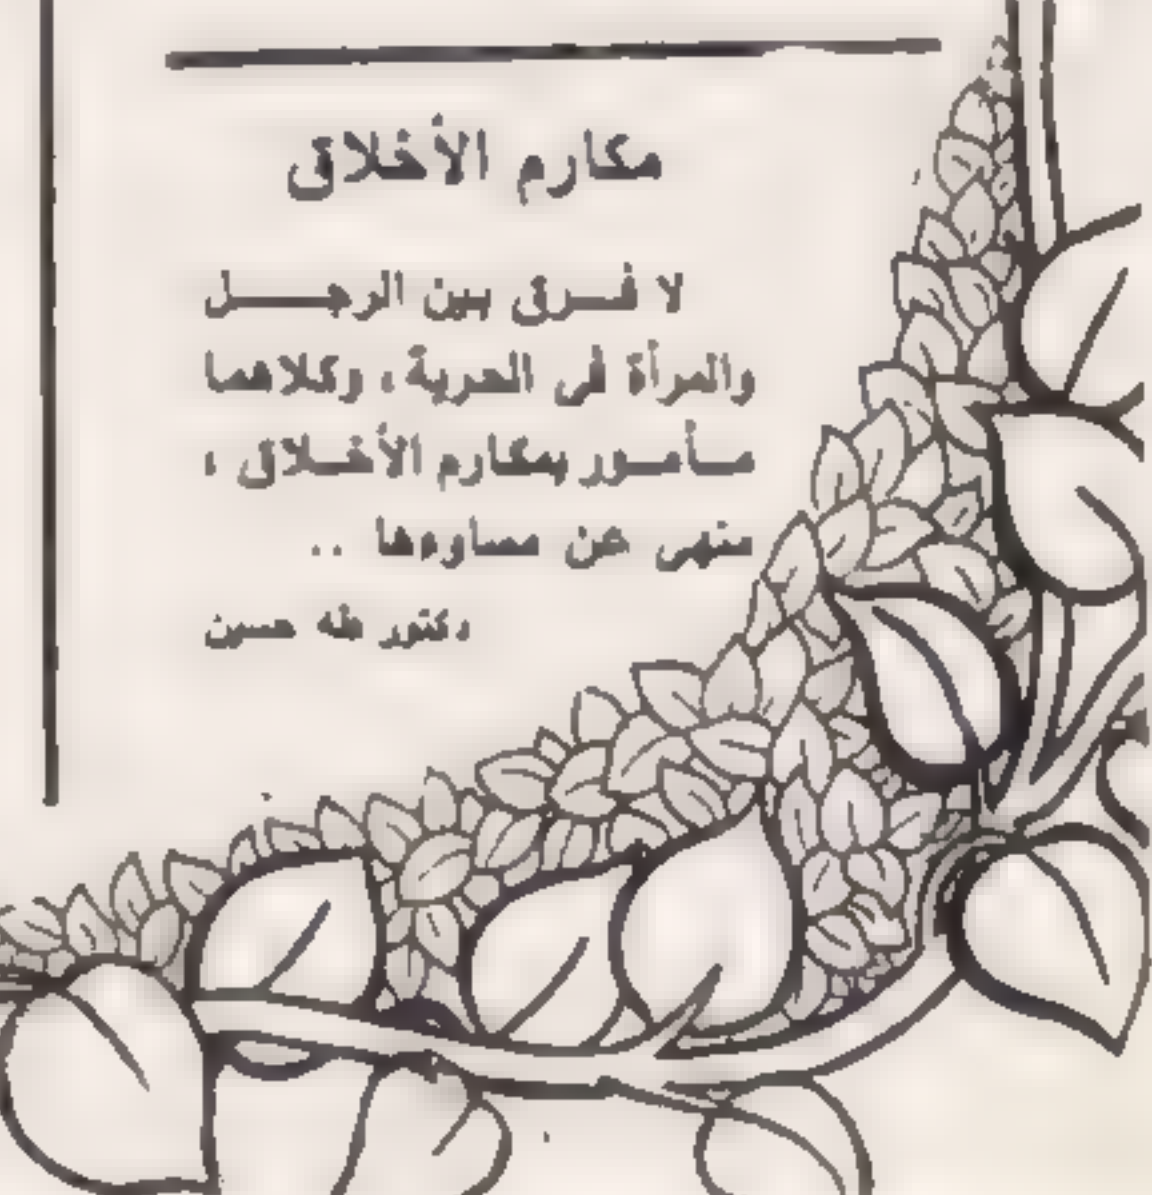 مكارم الأخلاق
لا فرق بين الرجل
والمرأة فى الحرية ، وكلاهما
مأمور بمكارم الأخلاق ،
منهى عن مساوءها ..
دكتور طه حسين